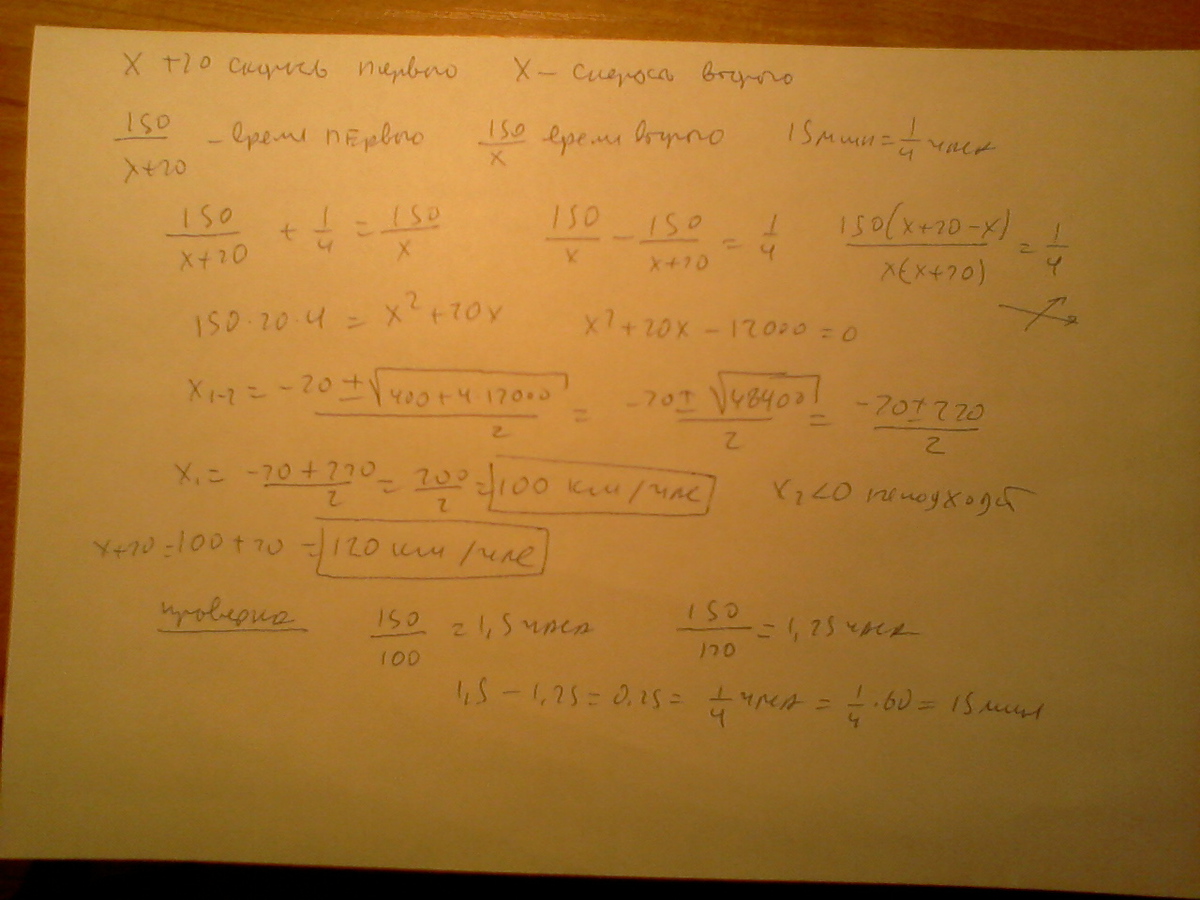 x + 20 скорость первого x – скорость второго
150/(x+20) – время первого 150/x время второго 15 мин = 1/4 часа
150/(x+20) + 1/4 = 150/x 150/x – 150/(x+20) = 1/4 150(x+20-x)/(x(x+20)) = 1/4
150·20·4 = x² + 20x x² + 20x – 12000 = 0
x₁₋₂ = (-20 ± √(400+4·12000))/2 = (-20 ± √48400)/2 = (-20 ± 220)/2
x₁ = (-20 + 220)/2 = 200/2 = 100 км/час x₂ < 0 не подходит
x+20 = 100 + 20 = 120 км/час
проверка 150/100 = 1,5 часа 150/120 = 1,25 часа
1,5 – 1,25 = 0,25 = 1/4 часа = 1/4 · 60 = 15 мин